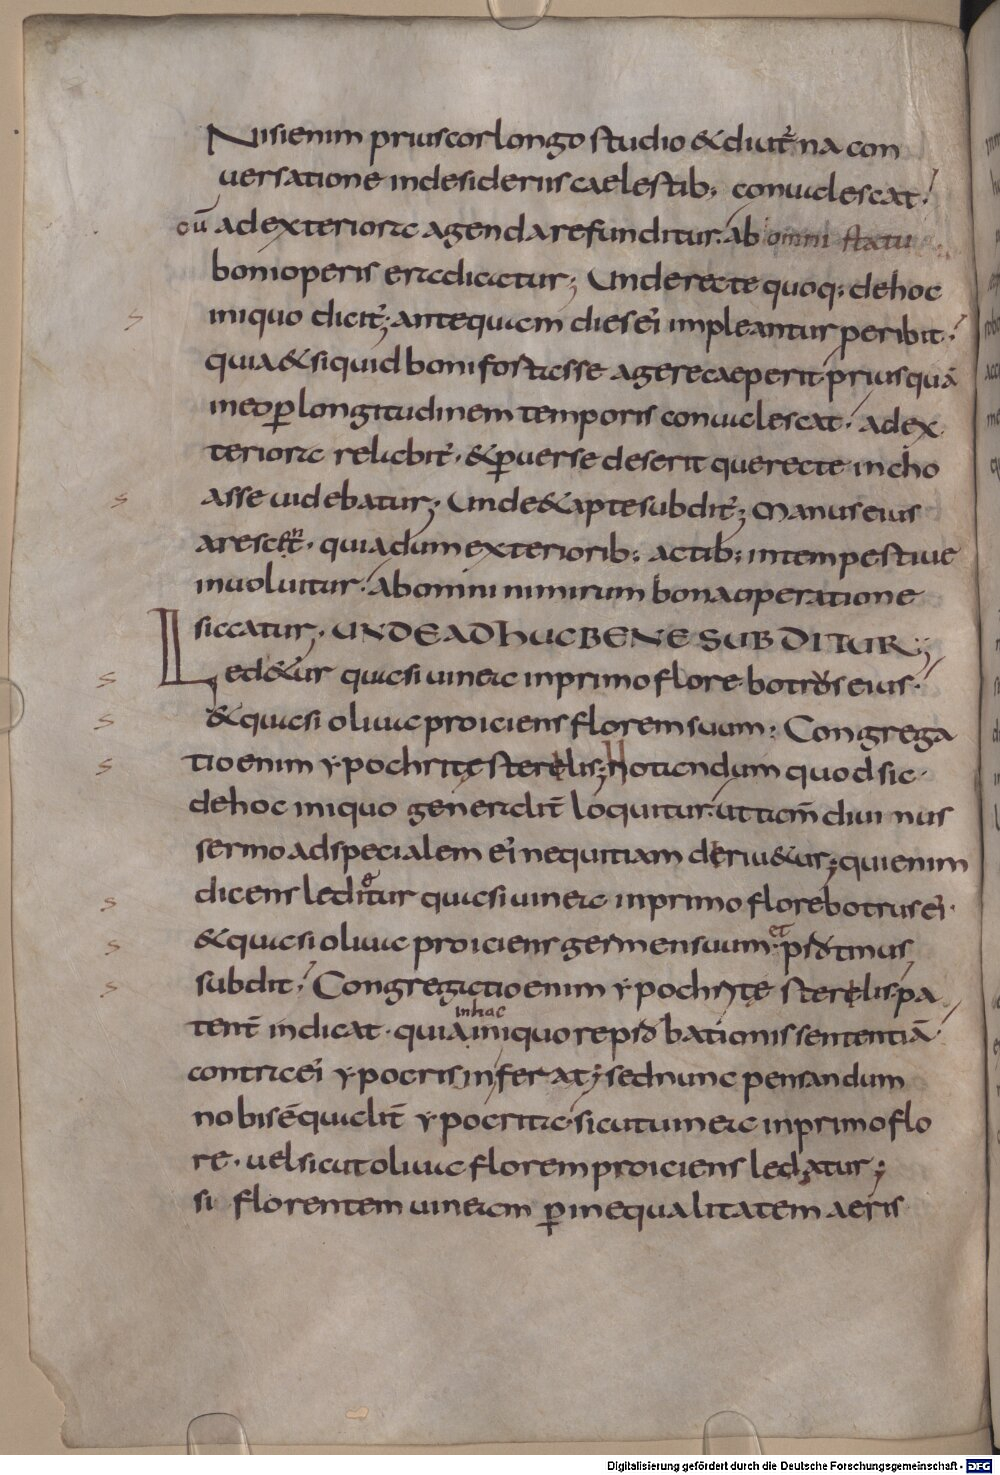 Nisi enim prius cor longo studio & diut̄na con
uersatione in desideriis caelestib; conualescat·
cū ad exteriora agenda refunditur. ab omni statu
boni operis eradicatur; Unde recte quoq; de hoc
iniquo dicit̄; antequam dies ei impleantur peribit·
quia & si quid boni fortasse agere caeperit· priusquā
in eo ꝑ longitudinem temporis conualescat· ad ex
teriora relabit̄· & ꝑuerse deserit que recte incho
asse uidebatur; Unde & apte subdit̄; Manus eius
arescent̄· quia dum exteriorib; actib; intempestiue
inuoluitur· Ab omni nimirum bona operatione
siccatur; UNDE ADHUC BENE SUBDITUR;
Led&ur quasi uinea in primo flore botros eius·
& quasi oliua proiciens florem suum; Congrega
tio enim ypochrite sterelis; Notandum quod sic
de hoc iniquo generalit̄ loquitur· ut tam̄ diuinus
sermo ad specialem ei nequitiam deriu&ur; qui enim
dicens leditur quasi uinea in primo flore botrus ei·
& quasi oliua proiciens germen suum· et protinus
subdit; Congregatio enim ypochryte sterelis· pa
tent̄ indicat· quia in hac iniquo reprobationis sententiā
contra ei ypocrisin ferat; sed nunc pensandum
nobis ē qualit̄ ypocrita sicut uinea in primo flo
re· uel sicut oliua florem proiciens ledatur;
si florentem uineam ꝑ inequalitatem aeris
Digitalisierung gefördert durch die Deutsche Forschungsgemeinschaft - DFG